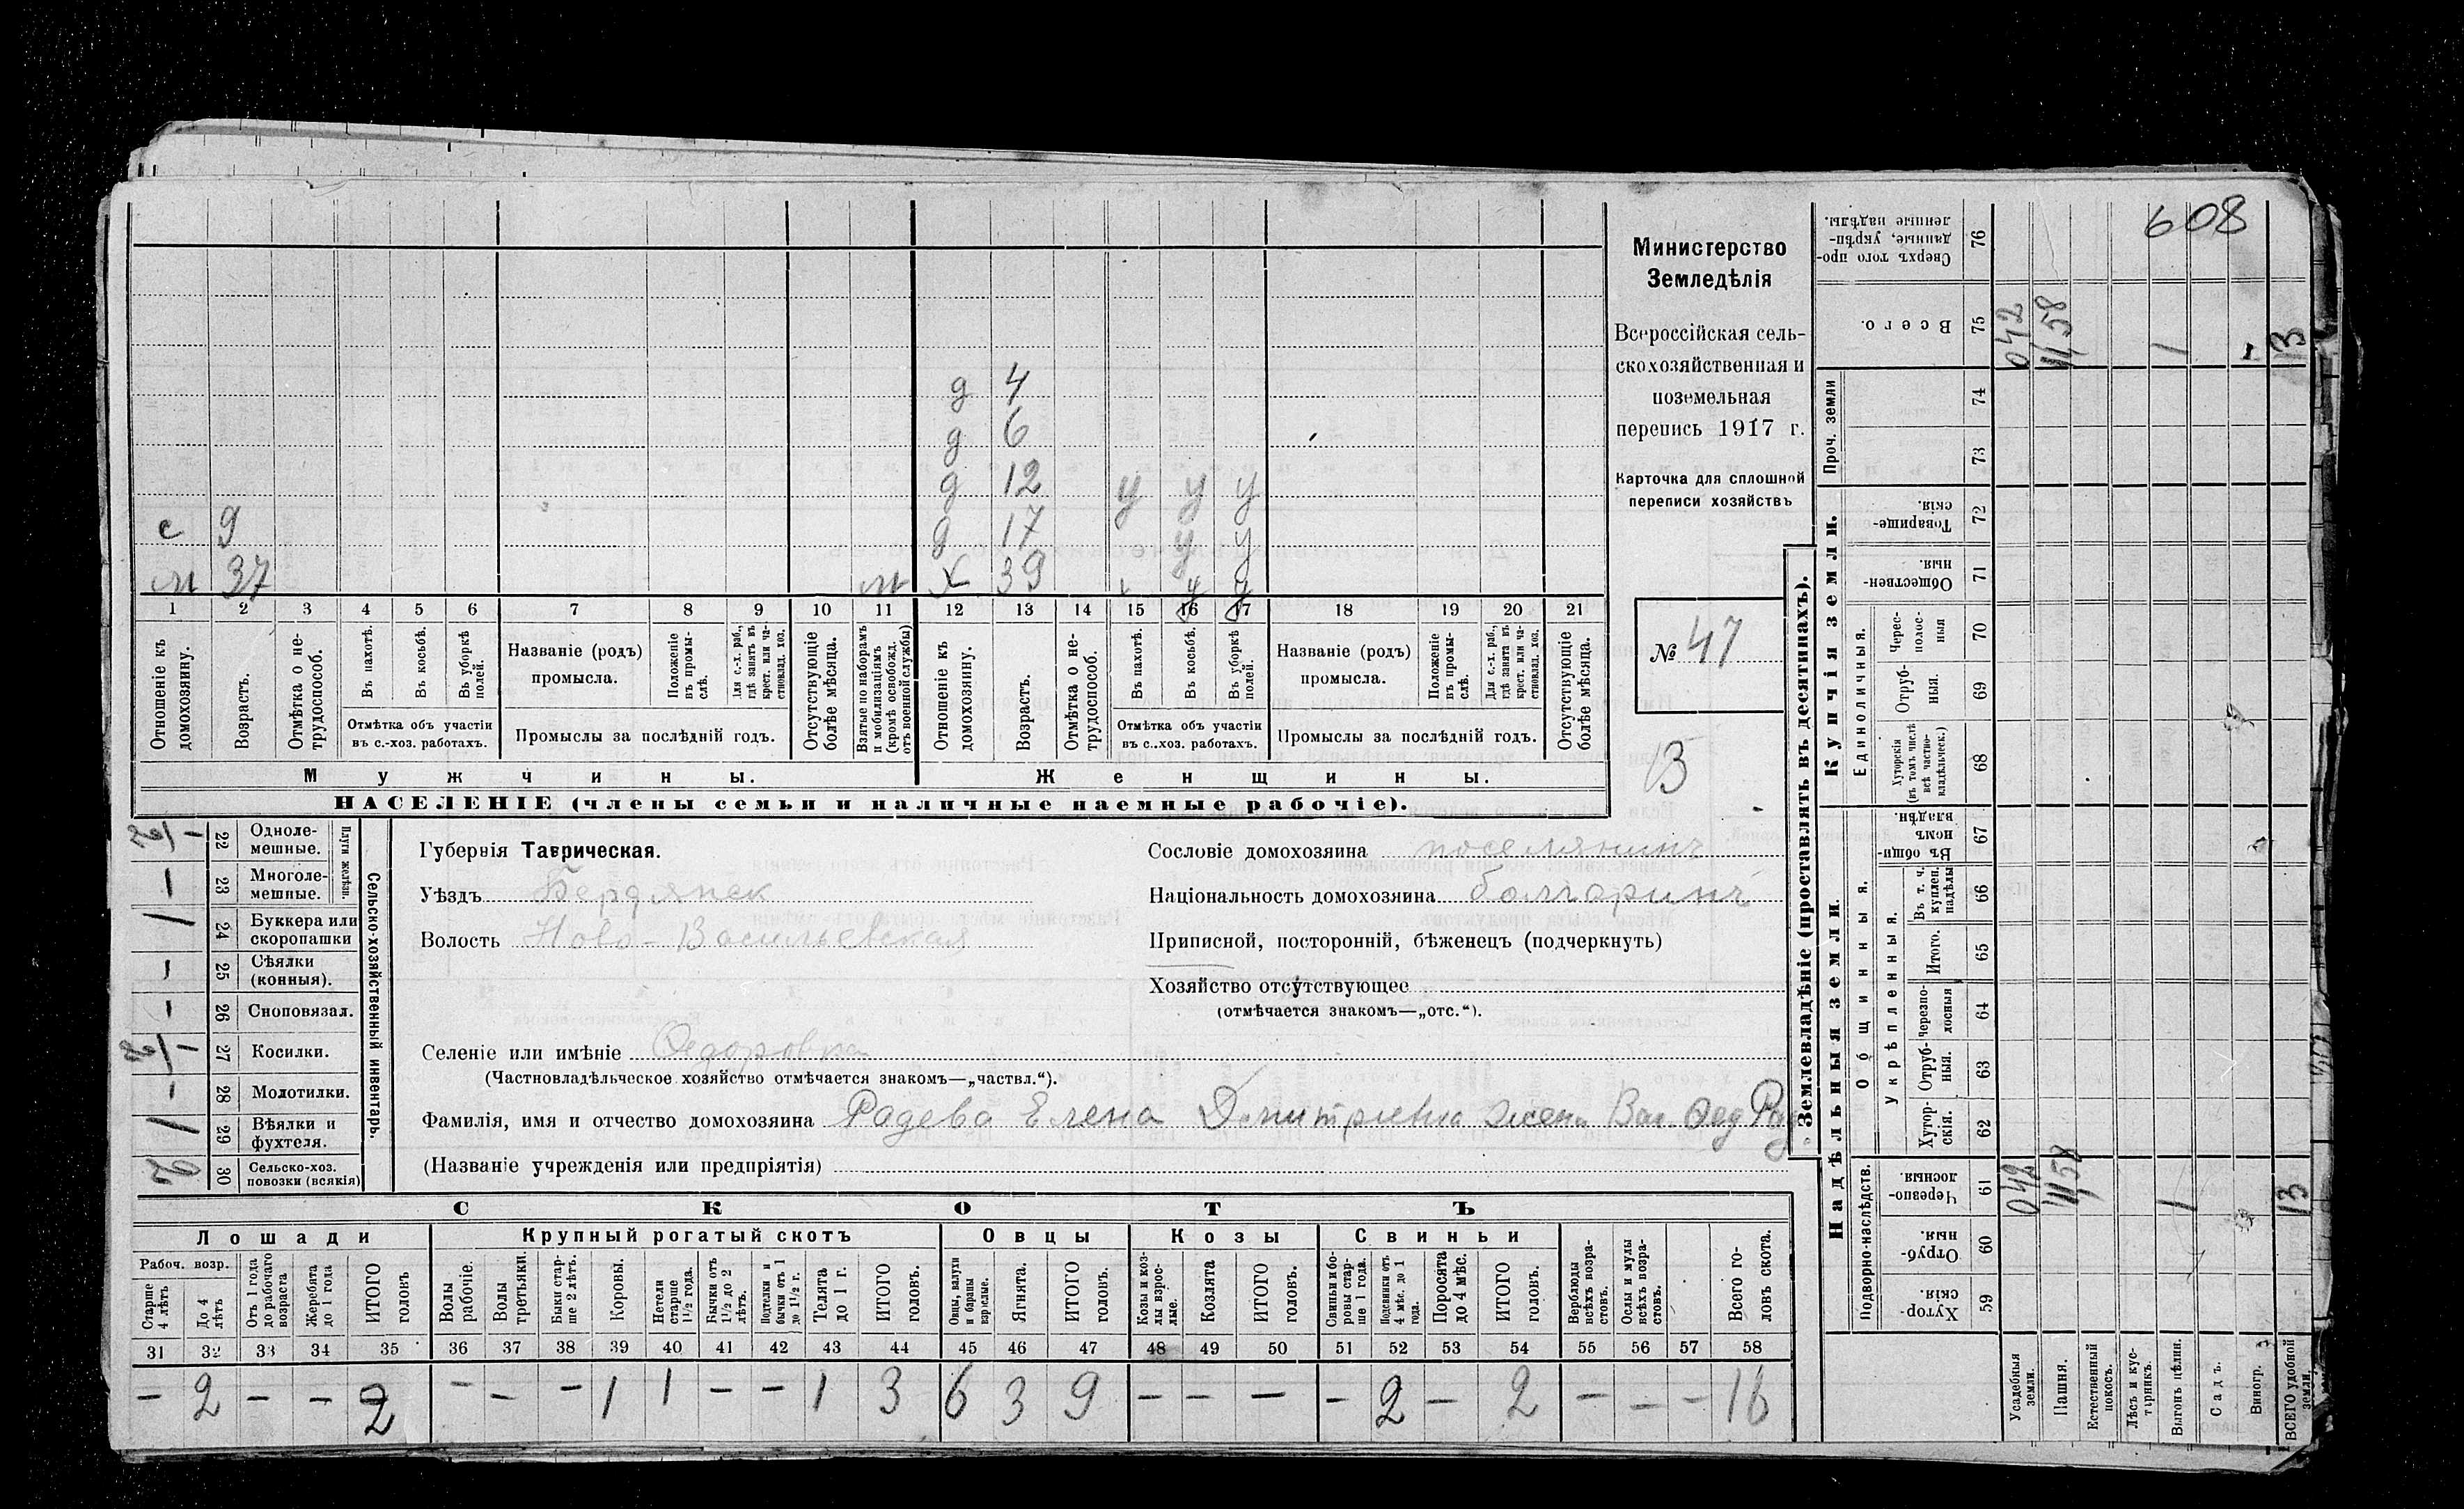 608
Министерство
Земледѣлія
Всероссійская сель-
скохозяйственная и
поземельная
перепись 1917 г.
Карточка для сплошной
переписи хозяйствъ
№ 47
13
д 4
д 6
д 12 у у у
с 9 д 17 у у
м 37 м ж 39 у у
1 2 3 4 5 6 7 8 9 10 11 12 13 14 15 16 17 18 19 20 21
Отношеніе къ домохозяину.
Возрастъ.
Отмѣтка о не-трудоспособ.
Въ пахотѣ.
Въ косьбѣ.
Въ уборкѣ полей.
Отмѣтка объ участіи
въ с.-хоз. работахъ.
Названіе (родъ)
промысла.
Положеніе въ промы-слѣ.
Для с.-х. раб., гдѣ занятъ въ крест. или ча-стновлад. хоз.
Промыслы за послѣдній годъ.
Отсутствующіе болѣе мѣсяца.
Взятые по наборамъ и мобилизаціямъ (кромѣ освобожд. отъ военной службы)
Отношеніе къ домохозяину.
Возрастъ.
Отмѣтка о не-трудоспособ.
Въ пахотѣ.
Въ косьбѣ.
Въ уборкѣ полей.
Отмѣтка объ участіи
въ с..хоз. работахъ.
Названіе (родъ)
промысла.
Положеніе въ промы-слѣ.
Для с.-х. раб., гдѣ занята въ крест. или ча-стновлад. хоз.
Промыслы за послѣдній годъ.
Отсутствующіе болѣе мѣсяца.
Мужчины.
Женщины.
НАСЕЛЕНІЕ (члены семьи и наличные наемные рабочіе).
Сельско-хозяйственный инвентарь.
Плуги желѣзн.
22 Одноле-мешные. 1/2
23 Многоле-мешные. —
24 Буккера или скоропашки 1
25 Сѣялки (конныя). —
26 Сноповязал. —
27 Косилки. 1/2
28 Молотилки. —
29 Вѣялки и фухтеля. 1
30 Сельско-хоз. повозки (всякія) 2
Губернія Таврическая.
Уѣздъ Бердянск
Волость Ново-Васильевская
Сословіе домохозяина поселянинъ
Національность домохозяина болгаринъ
Приписной, посторонній, бѣженецъ (подчеркнуть)
Хозяйство отсутствующее
(отмѣчается знакомъ—„отс.“).
Селеніе или имѣніе Федоровка
(Частновладѣльческое хозяйство отмѣчается знакомъ—„частвл.“).
Фамилія, имя и отчество домохозяина Радева Елена Дмитриевна жена Вас. Фед Рад
(Названіе учрежденія или предпріятія)
СКОТЪ
Лошади
Крупный рогатый скотъ
Овцы
Козы
Свиньи
Рабоч. возр.
Старше 4 лѣтъ
До 4 лѣтъ
Отъ 1 года до рабочаго возраста
Жеребята до 1 года
ИТОГО головъ
Волы рабочіе.
Волы третьяки.
Быки стар-ше 2 лѣтъ.
Коровы.
Нетели старше 1½ года.
Бычки отъ 1½ до 2 лѣтъ.
Подтелки и бычки отъ 1 до 1½ г.
Телята до 1 г.
ИТОГО головъ.
Овцы, валухи и бараны взрослые.
Ягнята.
ИТОГО головъ.
Козы и коз-лы взрос-лые.
Козлята
ИТОГО головъ.
Свиньи и бо-ровы стар-ше 1 года.
Подсвинки отъ 4 мѣс. до 1 года.
Поросята до 4 мѣс.
ИТОГО головъ.
Верблюды всѣхъ возра-стовъ.
Ослы и мулы всѣхъ возра-стовъ.
Всего го-ловъ скота.
31 32 33 34 35 36 37 38 39 40 41 42 43 44 45 46 47 48 49 50 51 52 53 54 55 56 57 58
— 2 — — 2 — — — 1 1 — — 1 3 6 3 9 — — — — 2 — 2 — — — 16
Землевладѣніе (проставлять въ десятинахъ).
Купчія земли.
Проч. земли
Единоличныя.
Надѣльныя земли.
Общинныя.
Укрѣпленныя.
Подворно-наслѣдств.
76 Сверхъ того про-данные, укрѣп-ленные надѣлы.
75 Всего. 042 11,58 1 13
74
73
72 Товарище-скія.
71 Обществен-ныя.
70 Черес-полос-ныя
69 Отруб-ныя.
68 Хуторскія (въ томъ числѣ всѣ частно-владѣльческ.)
67 Въ общин-номъ владѣн.
66 Въ т. ч. куплен. надѣлы
65 Итого.
64 Черезпо-лосныя
63 Отруб-ныя.
62 Хутор-скія.
61 Черезпо-лосныя. 042 11,58 1 13
60 Отруб-ныя
59 Хутор-скія.
Усадебныя земли.
Пашня.
Естественный покосъ.
Лѣсъ и кус-тарникъ.
Выгонъ цѣлин.
Садъ.
Виногр.
ВСЕГО удобной земли.